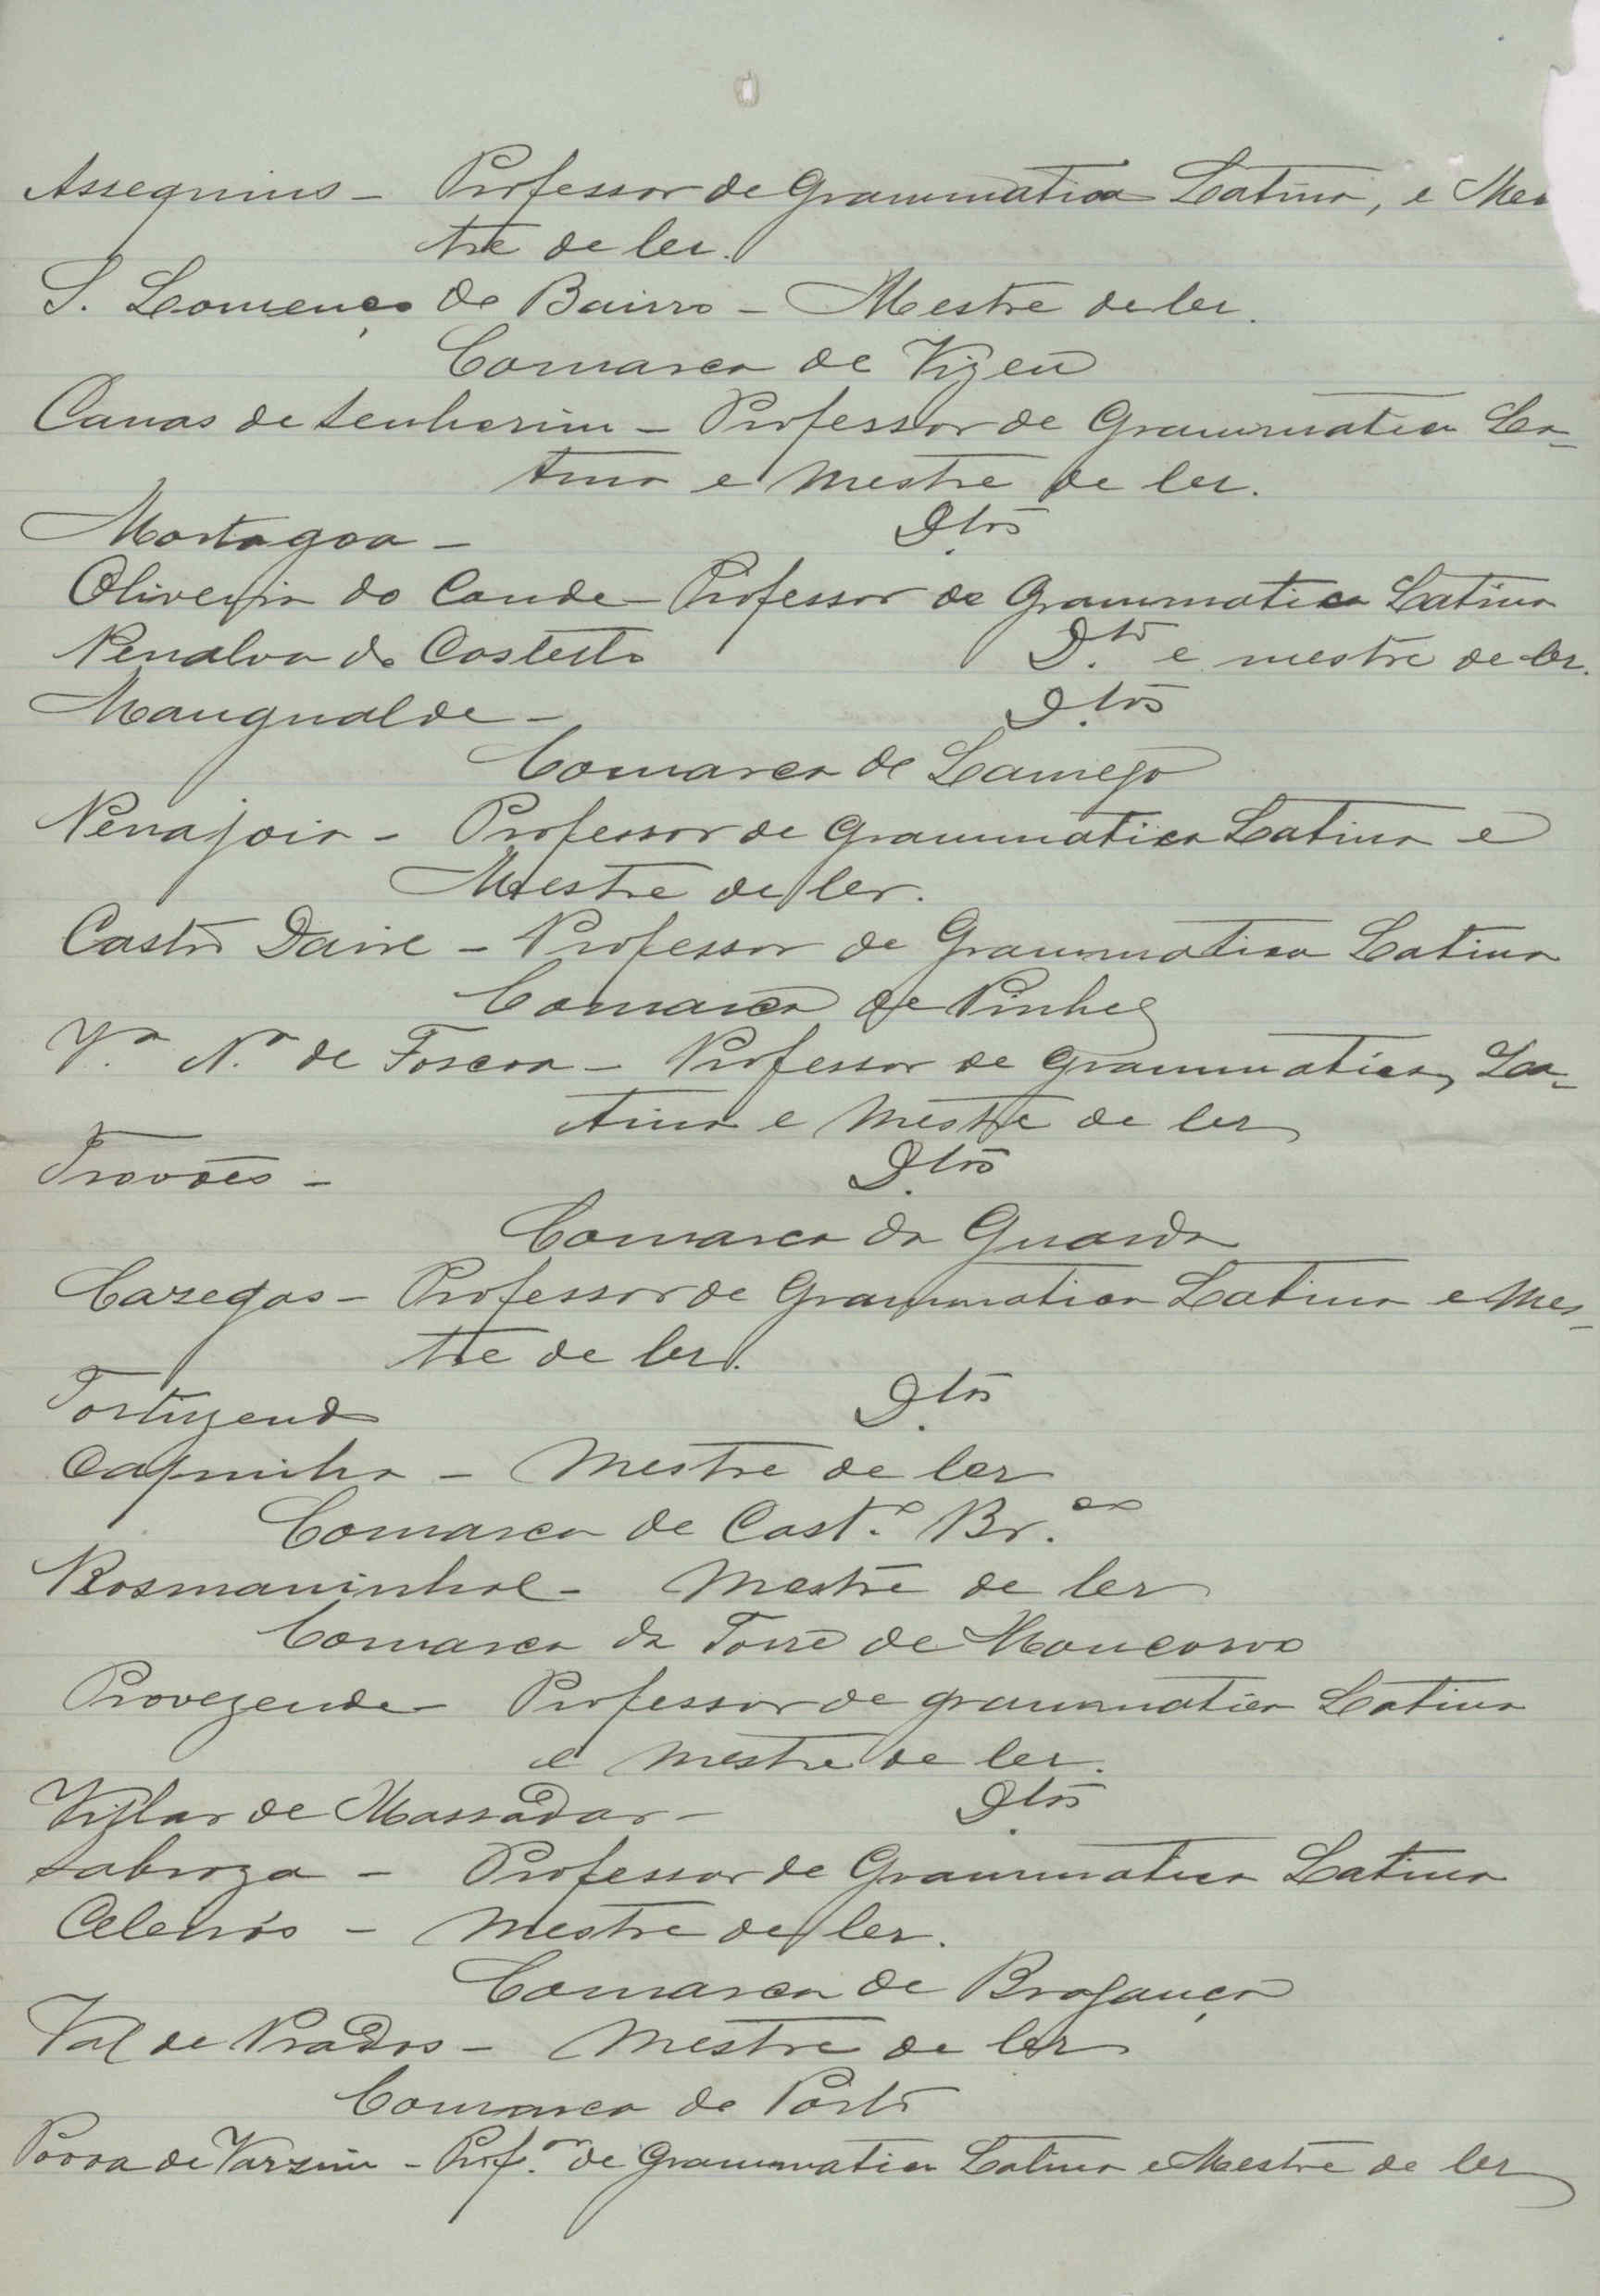 Assequins - Professor de Grammatica Latina, e Mes
tre de ler.
S. Lourenço do Bairro - Mestre de ler.
Comarca de Vizeu
Canas de Senhorim - Professor de Grammatica La-
tina e Mestre de ler.
Mortagoa - D.tos
Oliveira do Conde - Professor de Grammatica Latina
Penalva do Castello D.to e mestre de ler.
Mangualde - D.tos
Comarca de Lamego
Penajoia - Professor de Grammatica Latina e
Mestre de ler.
Castro Daire - Professor de Grammatica Latina
Comarca de Pinhel
V.a N.a de Foscoa - Professor de Grammatica, La-
tina e Mestre de ler
Trovões - D.tos
Comarca da Guarda
Casegas - Professor de Grammatica Latina e Mes-
tre de ler.
Tortuzendo D.tos
Capinha - Mestre de ler
Comarca de Cast.o Br.co
Rosmaninhal - Mestre de ler
Comarca da Torre de Moncorvo
Provezende - Professor de grammatica Latina
e Mestre de ler.
Villar de Massada - D.tos
Sabroza - Professor de Grammatica Latina
Celeirós - Mestre de ler.
Comarca de Bragança
Val de Prados - Mestre de ler
Comarca do Porto
Povoa de Varzim - Prof.or de Grammatica Latina e Mestre de ler